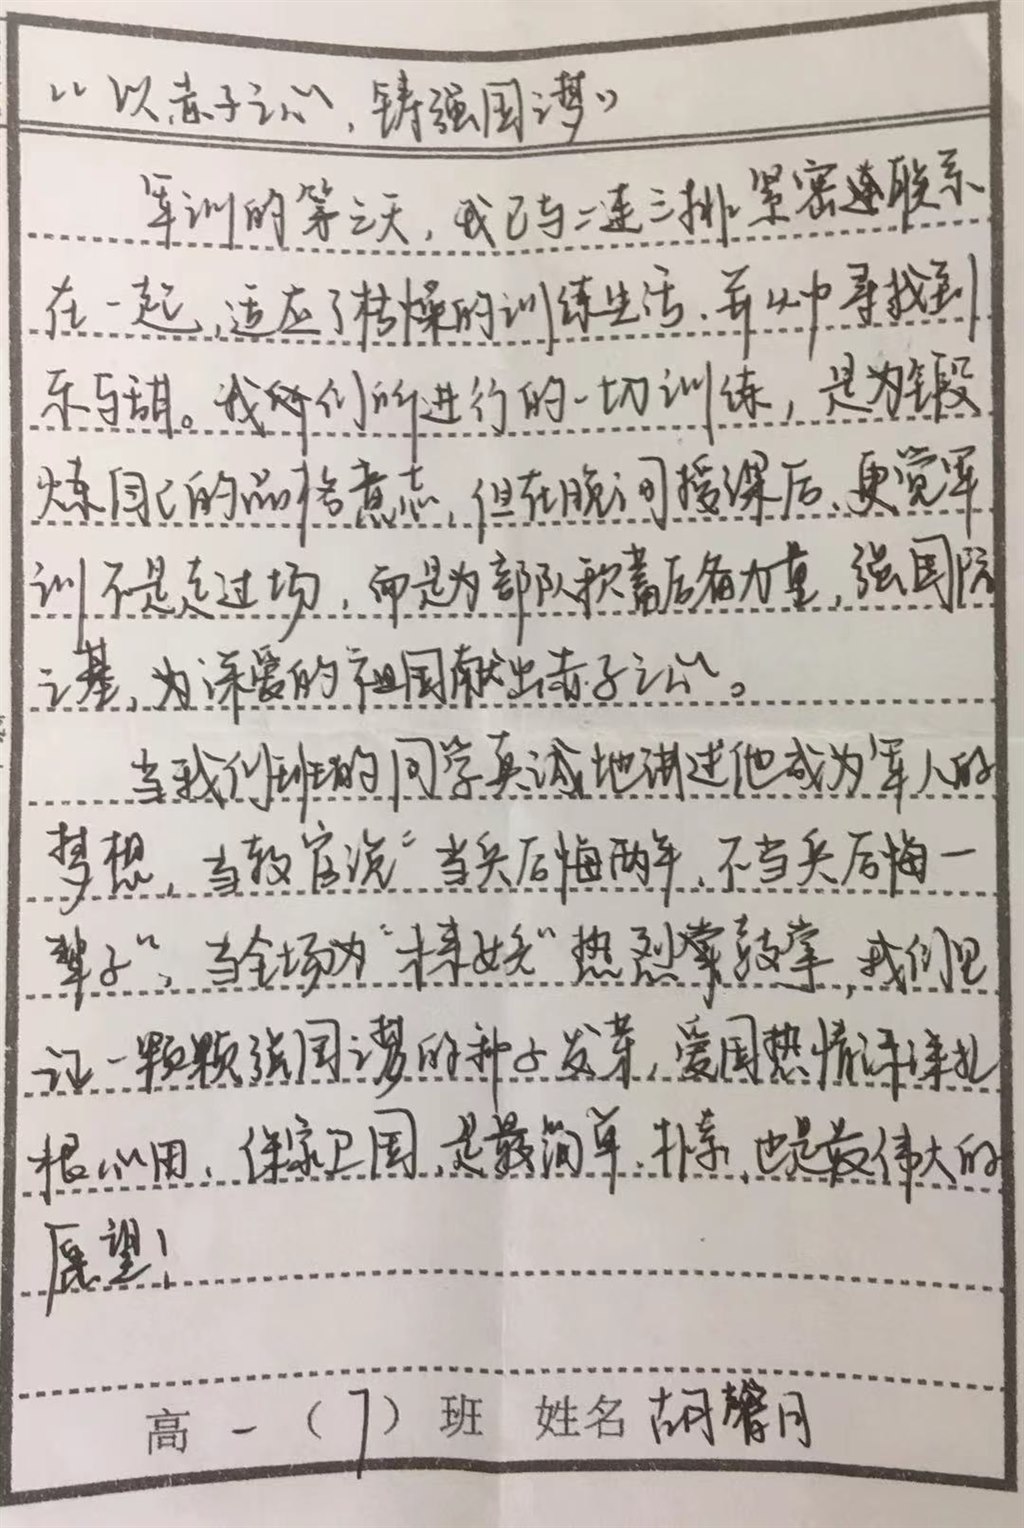 “以赤子之心，铸强国之梦”
军训的第三天，我已与二连三排紧密连联系
在一起，适应了枯燥的训练生活，并从中寻找到
乐与甜。我们所进行的一切训练，是为锻
炼自己的品格意志，但在晚间授课后，更觉军
训不是走过场，而是为部队积蓄后备力量，强国防
之基，为深爱的祖国献出赤子之心。
当我们班的同学真诚地讲述他成为军人的
梦想，当教官说“当兵后悔两年，不当兵后悔一
辈子”，当全场为“木兰女兵”热烈掌鼓掌，我们见
证一颗颗强国之梦的种子发芽，爱国热情深深扎
根心田，保家卫国，是最简单、朴素，也是最伟大的
愿望！
高一（7）班 姓名 胡馨月